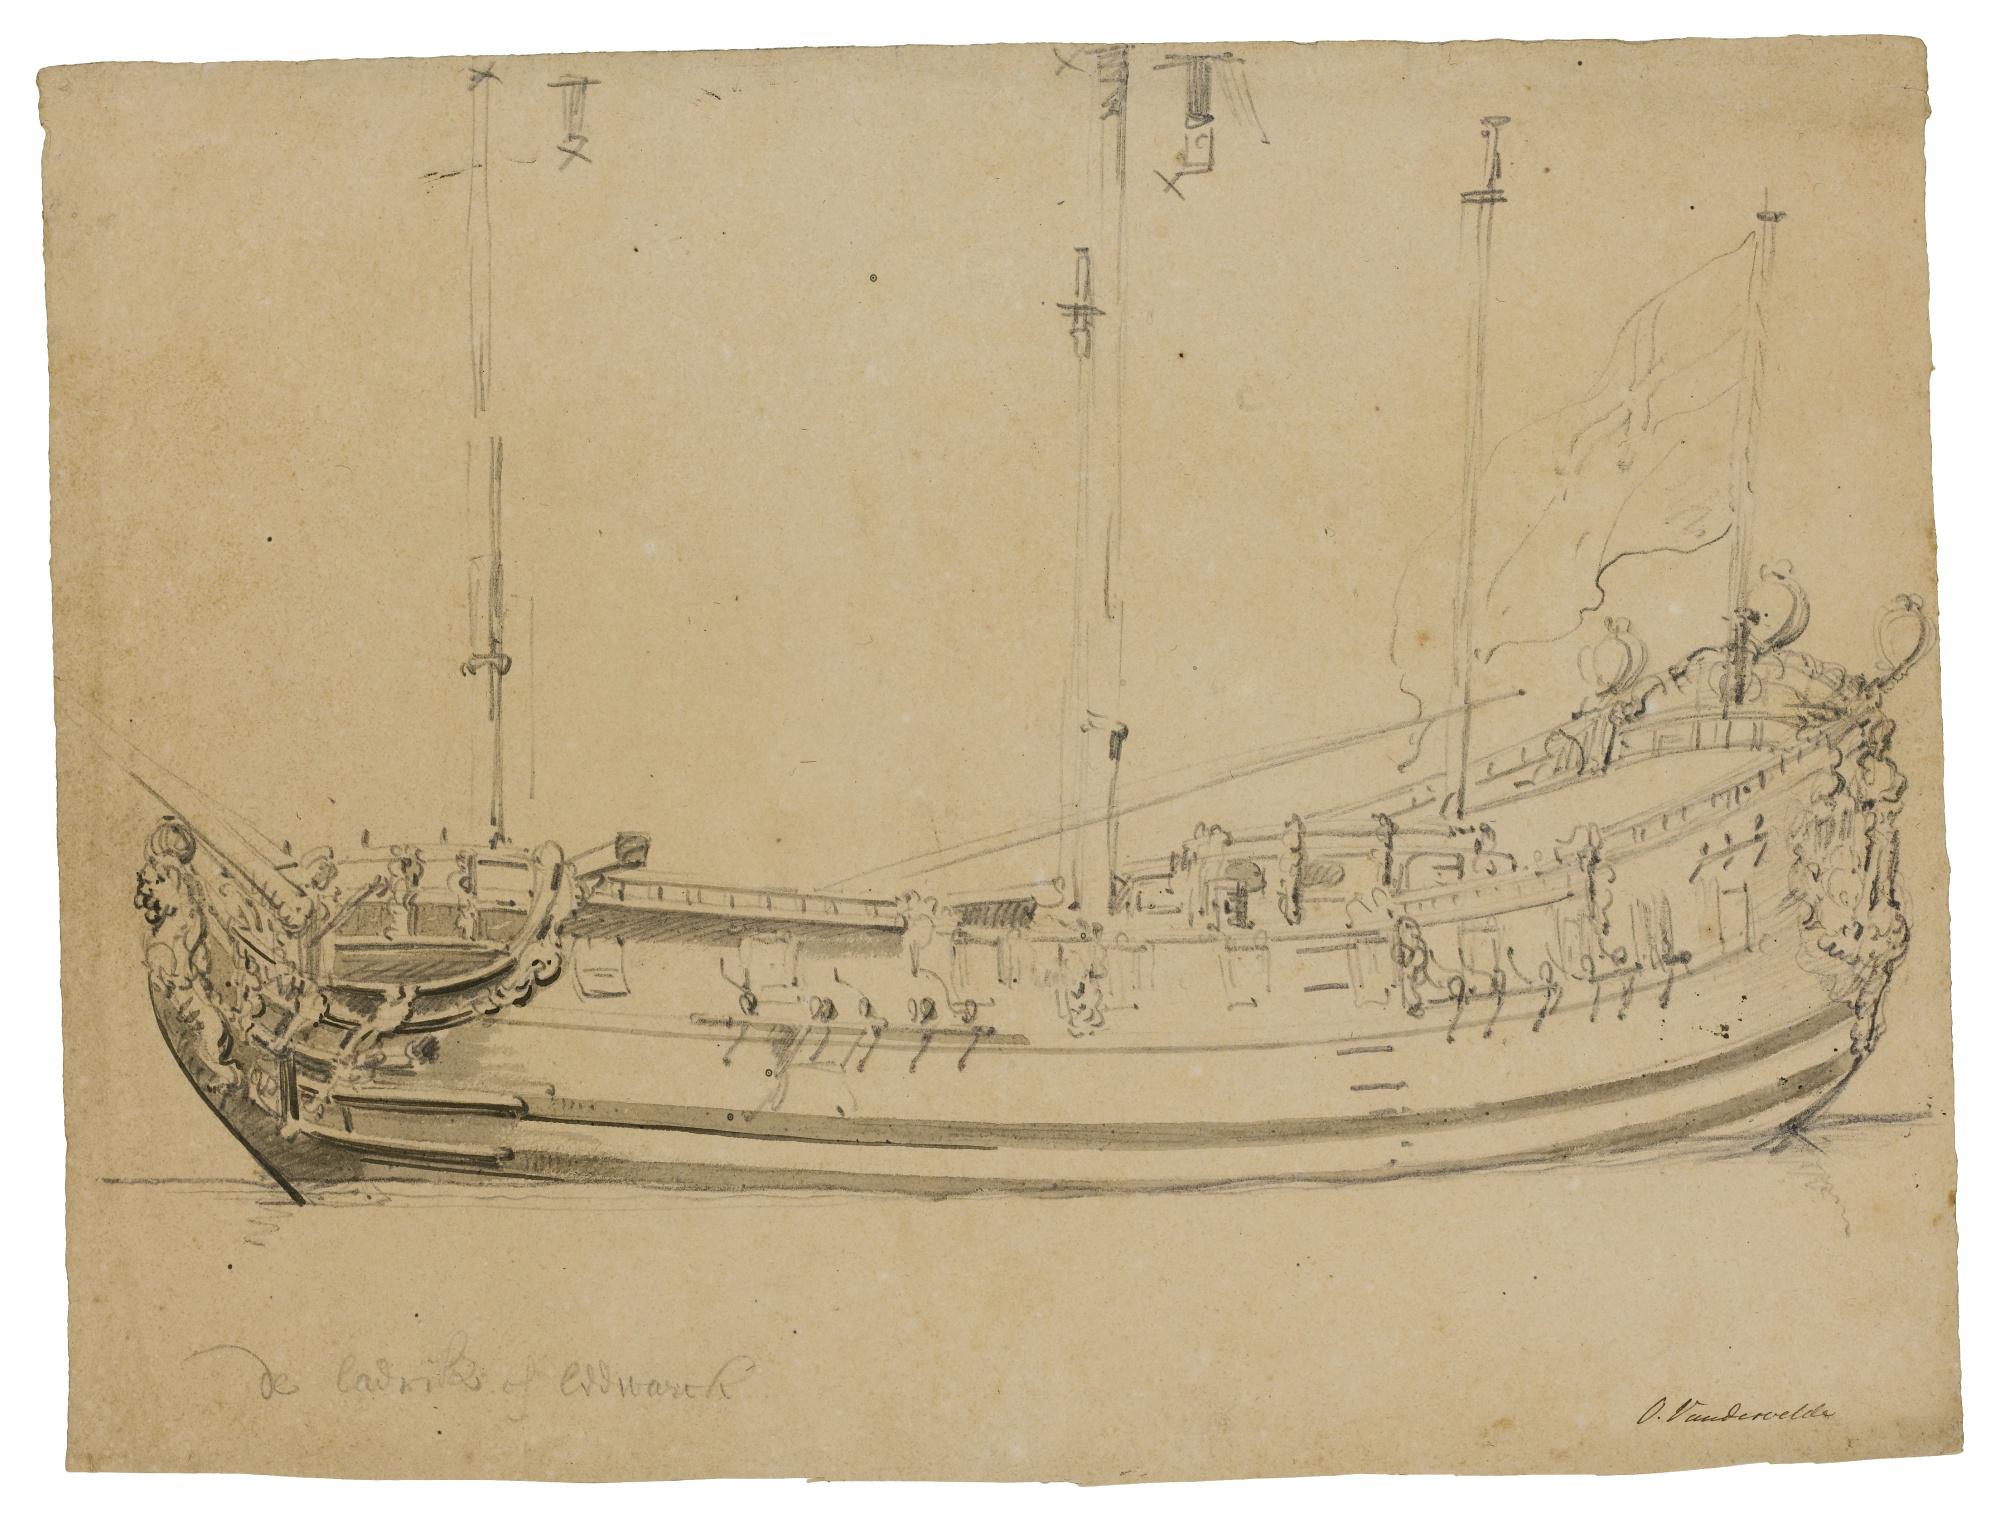 de cadrik of Eddwarck
O. Vandervelde